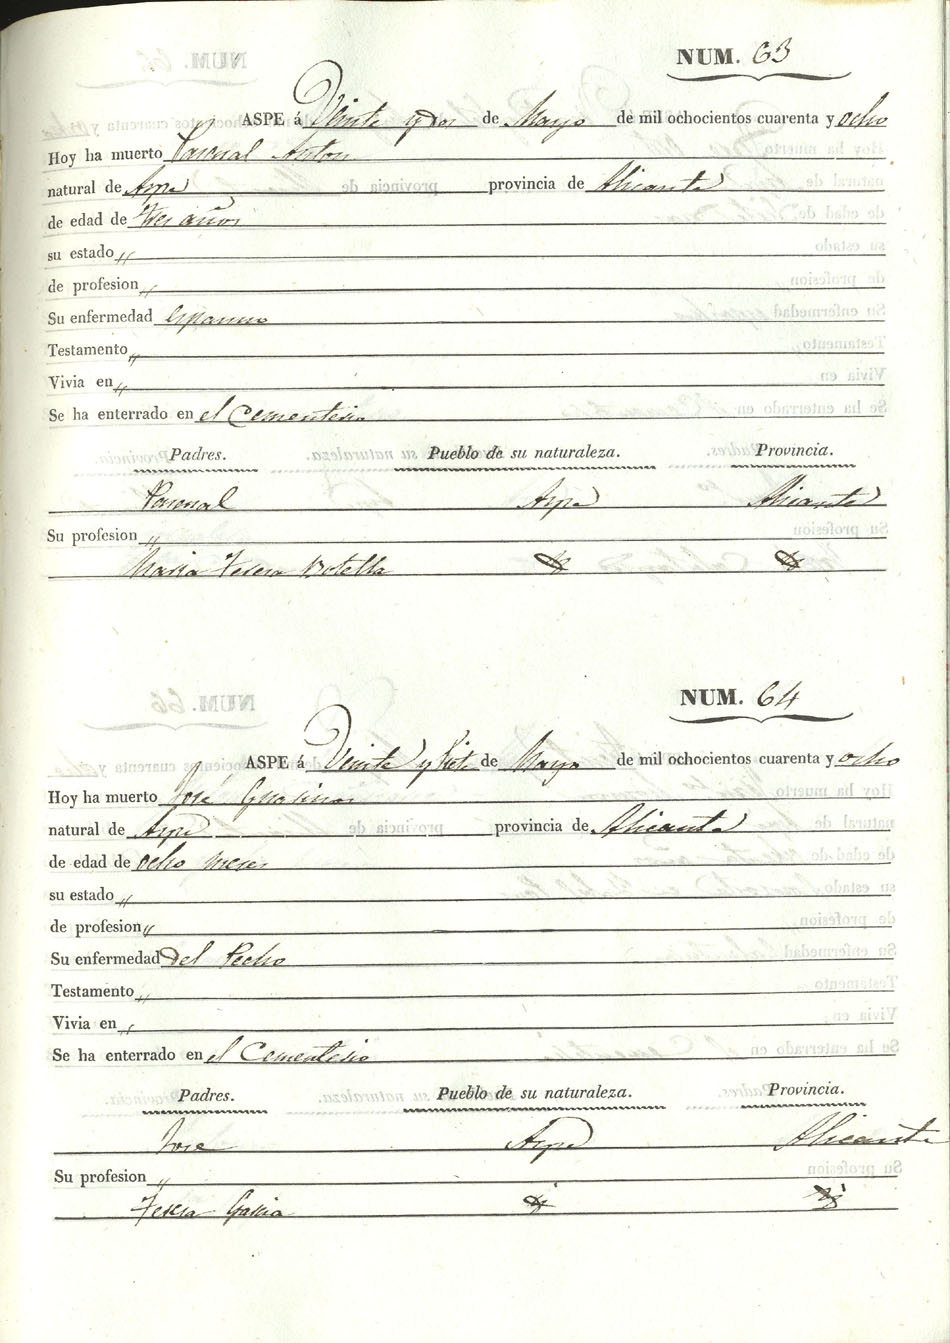 NUM. 63
ASPE á Veinte y dos de Mayo de mil ochocientos cuarenta y ocho
Hoy ha muerto Pascual Anton
natural de Aspe provincia de Alicante
de edad de tres años
su estado „
de profesion „
Su enfermedad Espasmo
Testamento „
Vivia en „
Se ha enterrado en el Cementerio
Padres. Pueblo de su naturaleza. Provincia.
Pascual Aspe Alicante
Su profesion „
Maria Teresa Botella
NUM. 64
ASPE á Veinte y siete de Mayo de mil ochocientos cuarenta y ocho
Hoy ha muerto José
natural de Aspe provincia de Alicante
de edad de ocho meses
su estado „
de profesion „
Su enfermedad del Pecho
Testamento „
Vivia en „
Se ha enterrado en el Cementerio
Padres. Pueblo de su naturaleza. Provincia.
Jose Aspe Alicante
Su profesion „
Teresa Garcia